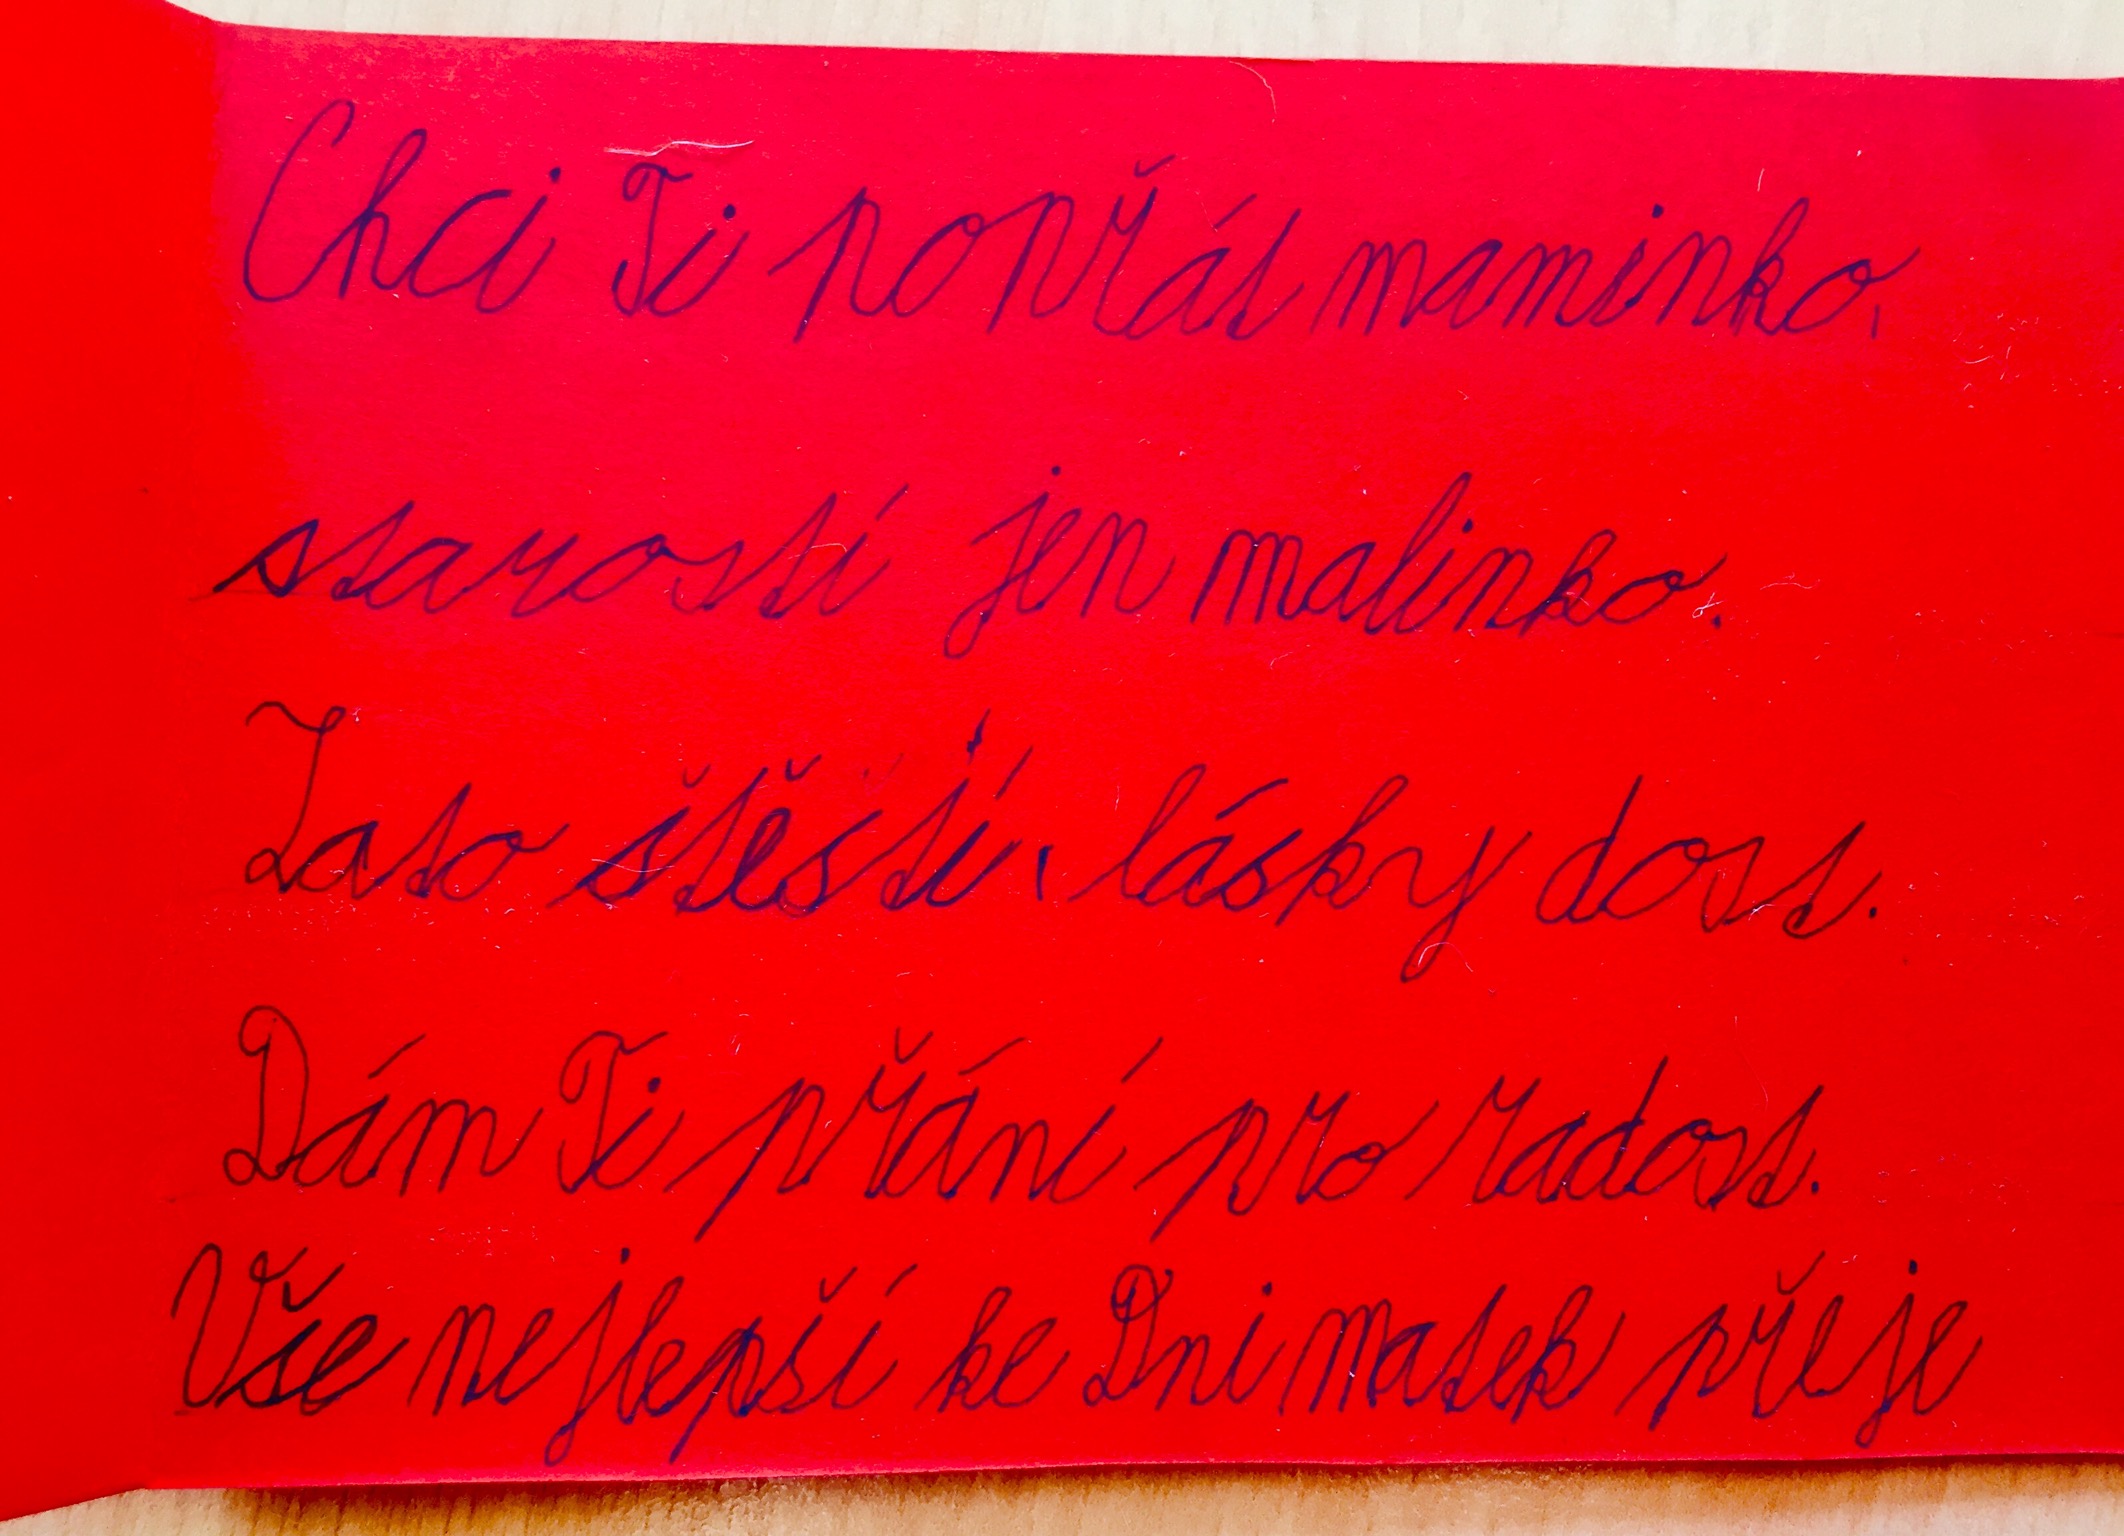 Chci Ti popřát maminko,
starostí jen malinko.
Zato štěstí, lásky dost.
Dám Ti přání pro radost.
Vše nejlepší ke Dni matek přeje